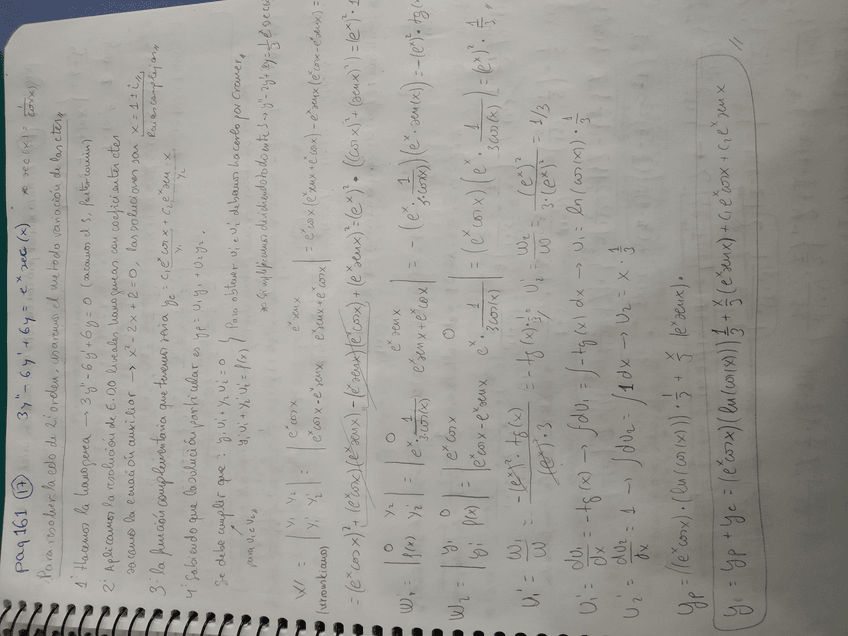 pag 161 (17) 3y'' - 6y' + 6y = e^x sec(x) * sec(x) = 1/cos(x)
Para resolver la edo de 2º orden, usaremos el metodo variación de las ctes,,
1º Hacemos la homogenea → 3y'' - 6y' + 6y = 0 (sacamos el 3, factor comun)
2º Aplicamos la resolución de E.D.O lineales homogeneas con coeficientes ctes
sacamos la ecuación auxiliar → x² - 2x + 2 = 0, las soluciones son x = 1 ± i,,
Raices complejas,,
3º la función complementaria que tenemos seria y_c = c₁ e^x cos x + c₂ e^x sen x
y₁ y₂
4º Sabiendo que la solución particular es y_p = u₁y₁ + u₂y₂.
Se debe cumplir que: y₁u₁' + y₂u₂' = 0
y₁'u₁' + y₂'u₂' = f(x) } Para obtener u₁ e u₂' debemos hacerlo por Cramer,,
para u₁ e u₂,,
* Simplificamos dividiendo todo entre 3 → y'' - 2y' + 2y = 1/3 e^x sec x
W = | y₁ y₂ ; y₁' y₂' | = | e^x cos x e^x sen x ; e^x cos x - e^x sen x e^x sen x + e^x cos x | = e^x cos x (e^x sen x + e^x cos x) - e^x sen x (e^x cos x - e^x sen x) =
(wronskiano)
= (e^x cos x)² + (e^x cos x)(e^x sen x) - (e^x sen x)(e^x cos x) + (e^x sen x)² = (e^x)² · ((cos x)² + (sen x)²) = (e^x)² · 1
W₁ = | 0 y₂ ; f(x) y₂' | = | 0 e^x sen x ; e^x · 1/(3cos(x)) e^x sen x + e^x cos x | = -(e^x · 1/(3·cos(x)))(e^x sen(x)) = -(e^x)² · tg(x)
W₂ = | y₁ 0 ; y₁' f(x) | = | e^x cos x 0 ; e^x cos x - e^x sen x e^x · 1/(3cos(x)) | = (e^x cos x)(e^x · 1/(3cos(x))) = (e^x)² · 1/3
u₁' = W₁/W = -(e^x)² · tg(x) / (e^x)² · 3 = -tg(x) · 1/3,, u₂' = W₂/W = (e^x)² / 3·(e^x)² = 1/3
u₁' = du₁/dx = -tg(x) → ∫du₁ = ∫-tg(x) dx → u₁ = ln(cos(x)) · 1/3
u₂' = du₂/dx = 1 → ∫du₂ = ∫1 dx → u₂ = x · 1/3
y_p = ((e^x cos x) · (ln(cos(x))) · 1/3 + x/3 (e^x sen x).
y = y_p + y_c = (e^x cos x)(ln(cos(x))) 1/3 + x/3 (e^x sen x) + c₁ e^x cos x + c₂ e^x sen x